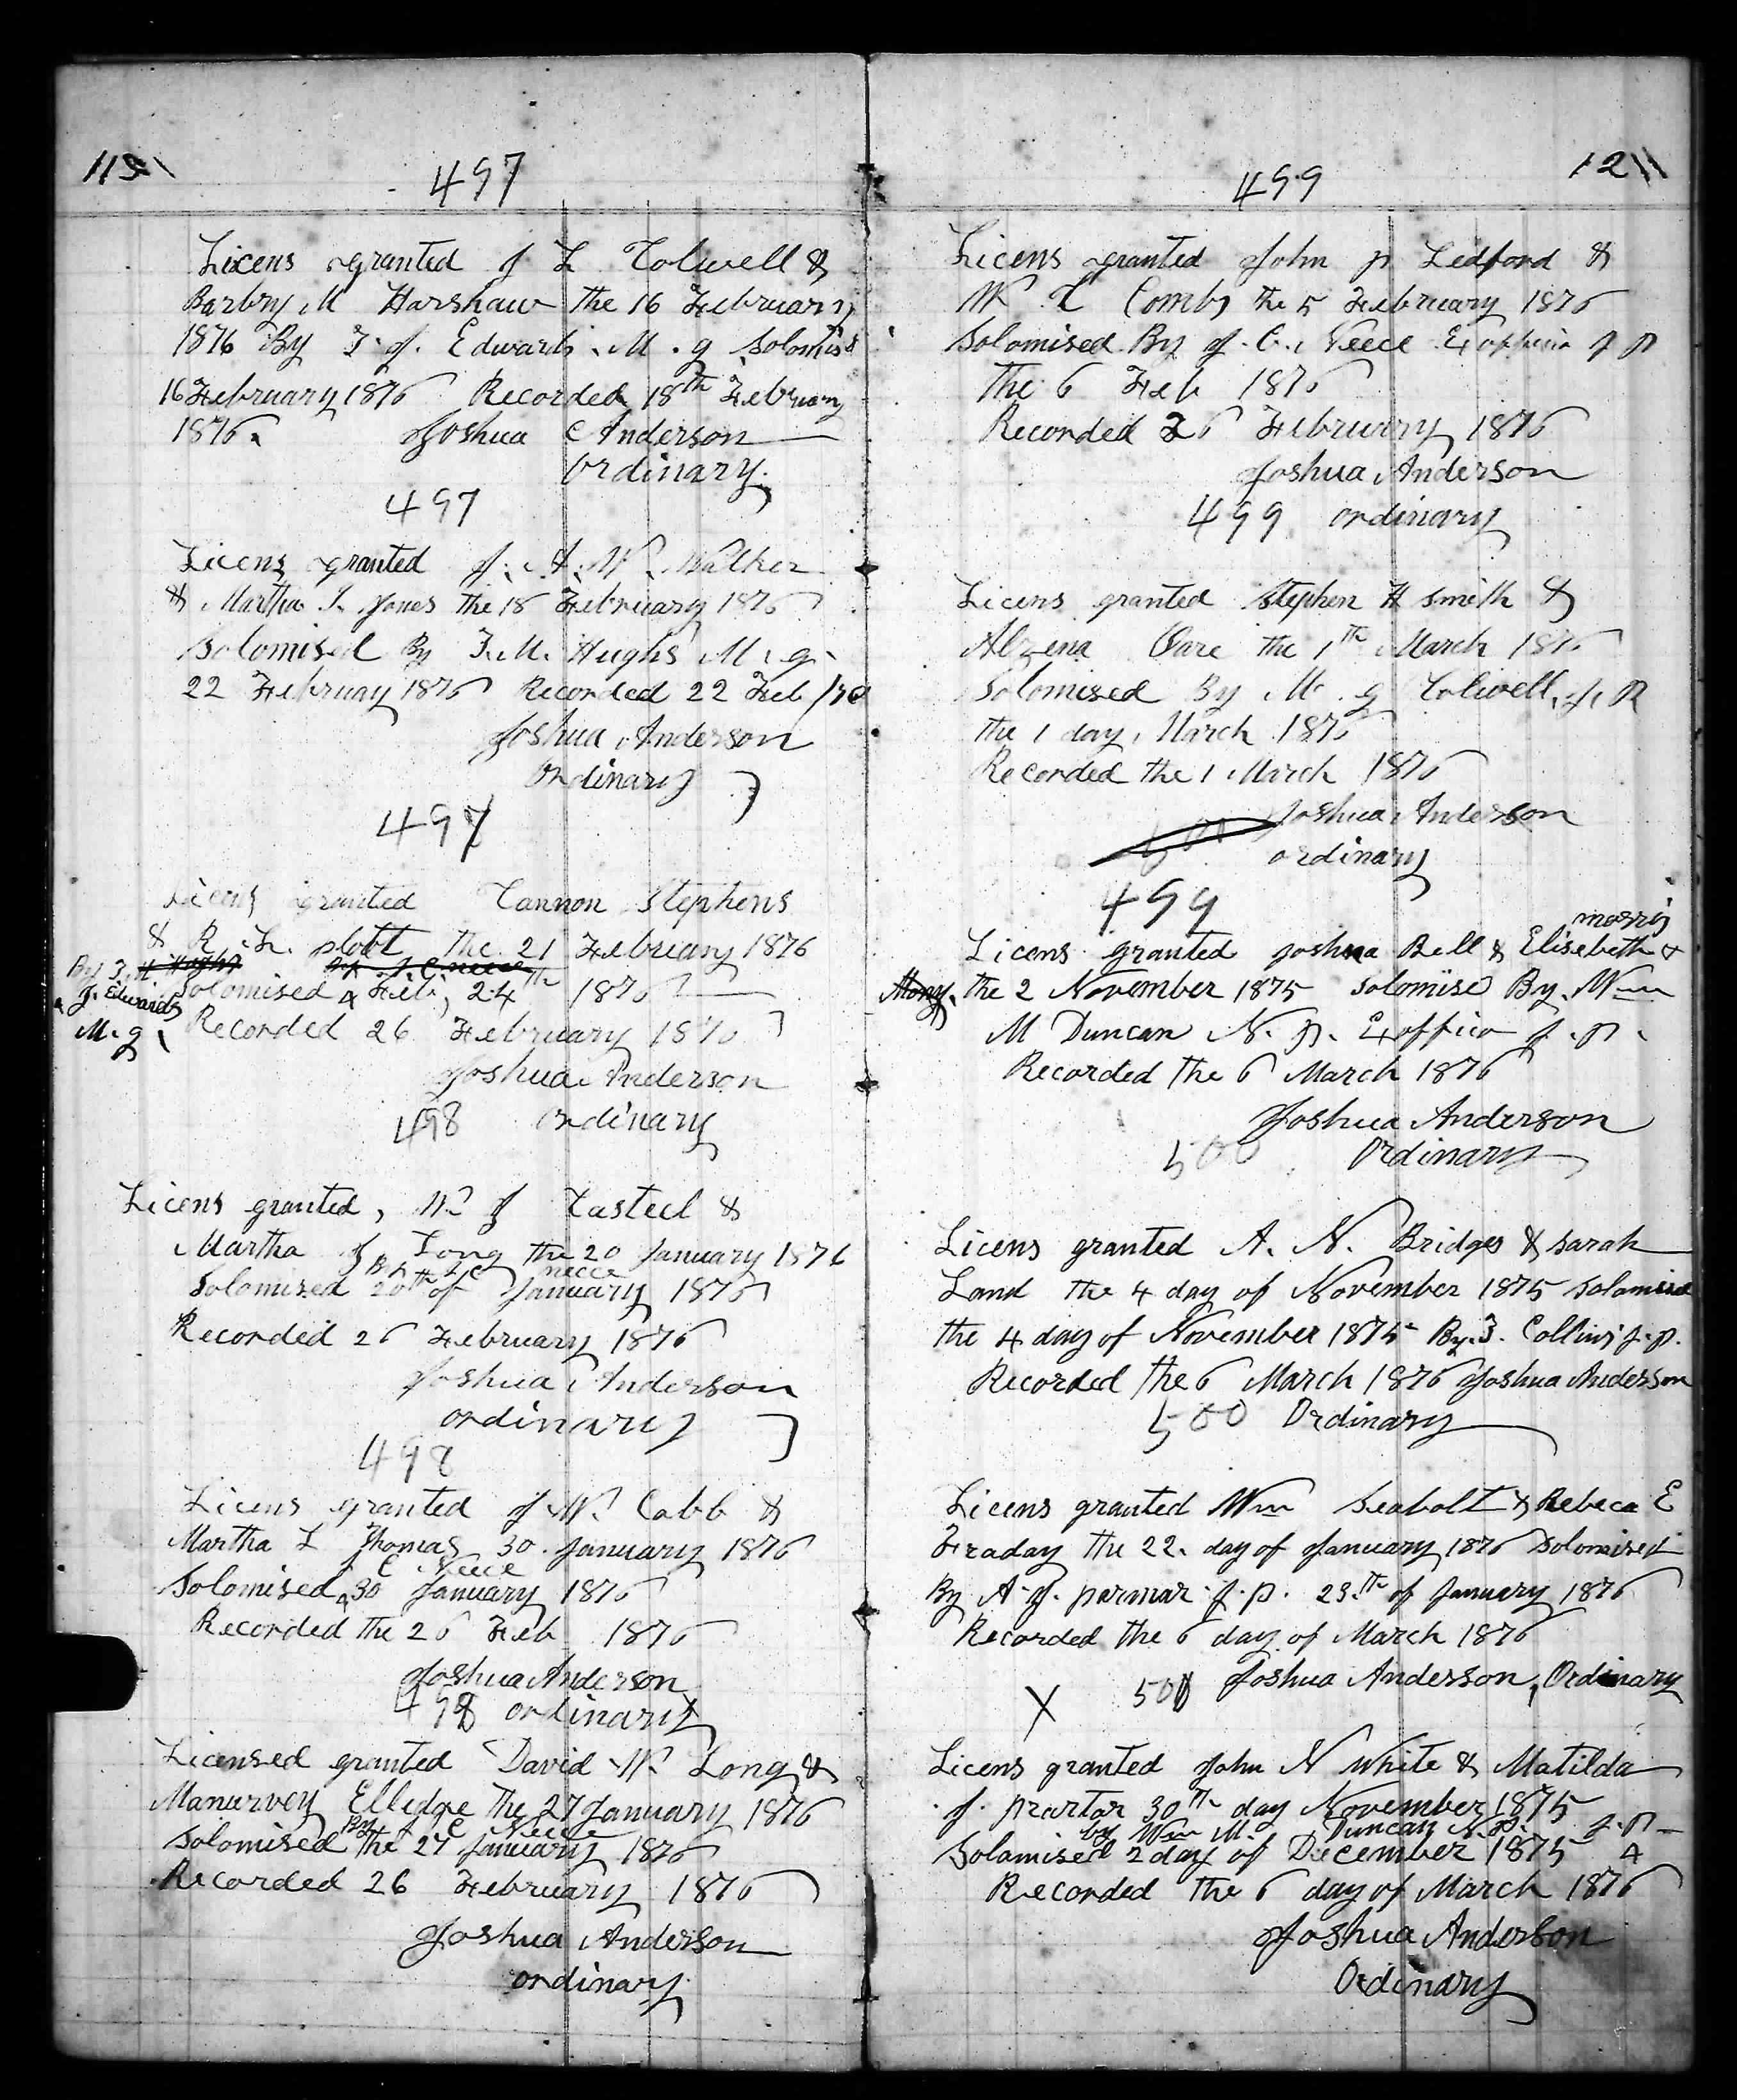 497
Licens granted J L Colwell &
Barbry M Harshaw the 16 February
1876 By F. J. Edwards M. g Solomisd
16 February 1876 Recorded 18th February
1876. Joshua Anderson
Ordinary.
497
Licens granted J. A. W. Walker
& Martha J. Jones the 18 February 1876
Solomised By F. M. Hughs M. g.
22 Februay 1876 Recorded 22 Feb /76
Joshua Anderson
Ordinary
497
Licens granted Cannon Stephens
& R. L. the 21 February 1876
Solomised Feb, 24th 1876
J. Edwards
M. g. Recorded 26 February 1876
Joshua Anderson
498 Ordinary
Licens granted, W J Casteel &
Martha J Long the 20 January 1876
By J C neece
Solomised 20th of January 1876
Recorded 26 February 1876
Joshua Anderson
ordinary
498
Licens granted J W. Cobb &
Martha L Thomas 30. January 1876
J C Neece
Solomised 30 January 1876
Recorded the 26 Feb 1876
Joshua Anderson
498 ordinary
Licensed granted David W. Long &
Manurvey Elledge the 27 January 1876
By J C Neece
Solomised the 27 January 1876
Recorded 26 February 1876
Joshua Anderson
ordinary
121
499
Licens granted John p Ledford &
W C Combs the 5 February 1876
Solomised By J. C. Neece Exofficio J P
the 6 Feb 1876
Recorded 26 February 1876
Joshua Anderson
499 ordinary
Licens granted Stephen H Smith &
Alzena the 1th March 1876
Solomised By M. g Colwell, J. P
the 1 day March 1876
Recorded the 1 March 1876
Joshua Anderson
500 ordinary
499
morris
Licens granted Joshua Bell & Elisebeth
the 2 November 1875 Solomise By. Wm
M Duncan N. p. Exoffico J. p.
Recorded the 6 March 1876
Joshua Anderson
500 Ordinary
Licens granted A. N. Bridges & Sarah
Land the 4 day of November 1875 Solomised
the 4 day of November 1875 By. J. Collins J. p.
Recorded the 6 March 1876 Joshua Anderson
500 Ordinary
Licens granted Wm Seabolt & Rebeca E
Fraday the 22. day of January 1876 Solomised
By A. J. parmar J. p. 23.th of January 1876
Recorded the 6 day of March 1876
X 500 Joshua Anderson, Ordinary
Licens granted John N White & Matilda
J. prartor 30th day November 1875
by Wm M. Duncan N. P. J. P
Solamised 2 day of December 1875
Recorded the 6 day of March 1876
Joshua Anderson
Ordinary